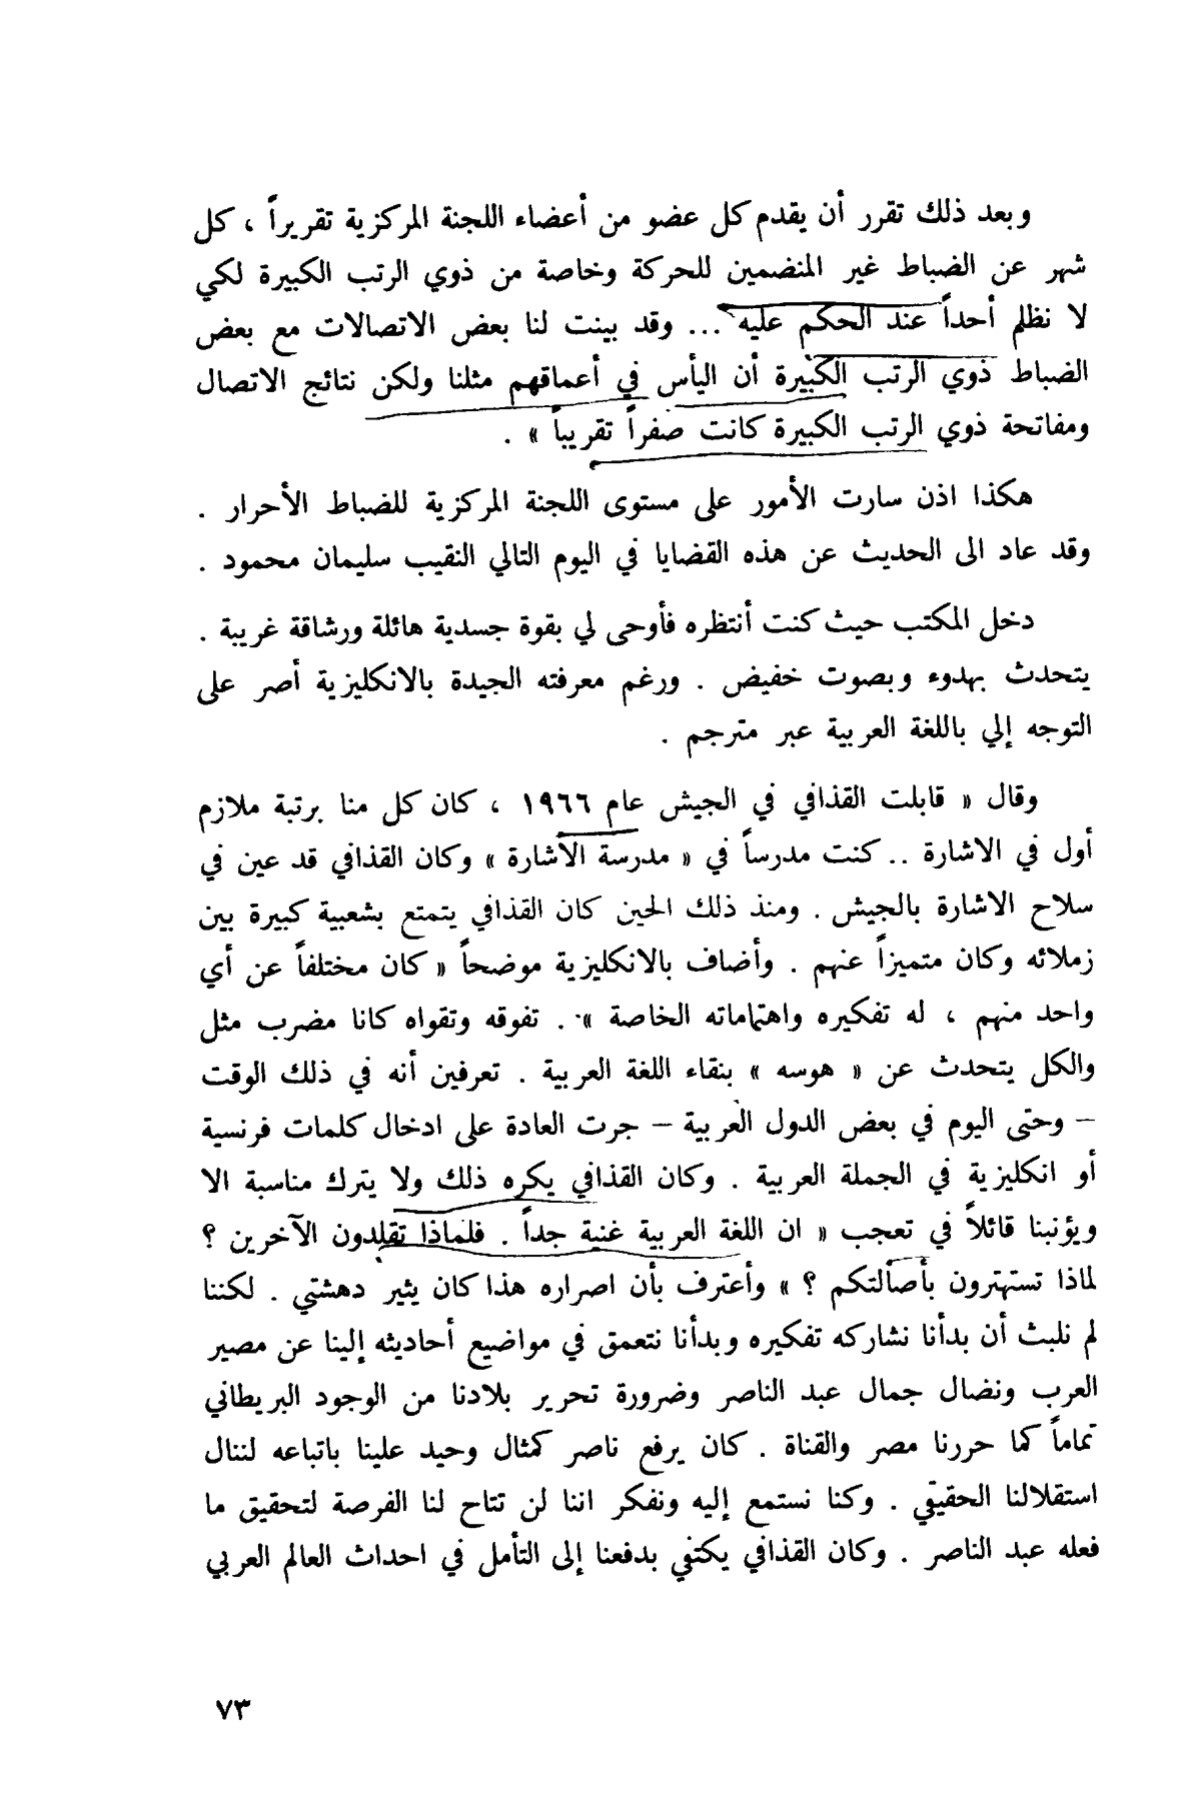 وبعد ذلك تقرر أن يقدم كل عضو من أعضاء اللجنة المركزية تقريراً ، كل
شهر عن الضباط غير المنضمين للحركة وخاصة من ذوي الرتب الكبيرة لكي
لا نظلم أحداً عند الحكم عليه ... وقد بينت لنا بعض الاتصالات مع بعض
الضباط ذوي الرتب الكبيرة أن اليأس في أعماقهم مثلنا ولكن نتائج الاتصال
ومفاتحة ذوي الرتب الكبيرة كانت صفراً تقريباً » .
هكذا اذن سارت الأمور على مستوى اللجنة المركزية للضباط الأحرار .
وقد عاد الى الحديث عن هذه القضايا في اليوم التالي النقيب سليمان محمود .
دخل المكتب حيث كنت أنتظره فأوحى لي بقوة جسدية هائلة ورشاقة غريبة .
يتحدث بهدوء وبصوت خفيض . ورغم معرفته الجيدة بالانكليزية أصر على
التوجه إلي باللغة العربية عبر مترجم .
وقال « قابلت القذافي في الجيش عام ١٩٦٦ ، كان كل منا برتبة ملازم
أول في الاشارة .. كنت مدرساً في « مدرسة الاشارة » وكان القذافي قد عين في
سلاح الاشارة بالجيش . ومنذ ذلك الحين كان القذافي يتمتع بشعبية كبيرة بين
زملائه وكان متميزاً عنهم . وأضاف بالانكليزية موضحاً « كان مختلفاً عن أي
واحد منهم ، له تفكيره واهتماماته الخاصة » . تفوقه وتقواه كانا مضرب مثل
والكل يتحدث عن « هوسه » بنقاء اللغة العربية . تعرفين أنه في ذلك الوقت
– وحتى اليوم في بعض الدول العربية – جرت العادة على ادخال كلمات فرنسية
أو انكليزية في الجملة العربية . وكان القذافي يكره ذلك ولا يترك مناسبة الا
ويؤنبنا قائلاً في تعجب « ان اللغة العربية غنية جداً . فلماذا تقلدون الآخرين ؟
لماذا تستهترون بأصالتكم ؟ » وأعترف بأن اصراره هذا كان يثير دهشتي . لكننا
لم نلبث أن بدأنا نشاركه تفكيره وبدأنا نتعمق في مواضيع أحاديثه إلينا عن مصير
العرب ونضال جمال عبد الناصر وضرورة تحرير بلادنا من الوجود البريطاني
تماماً كما حررنا مصر والقناة . كان يرفع ناصر كمثال وحيد علينا باتباعه لننال
استقلالنا الحقيقي . وكنا نستمع إليه ونفكر اننا لن تتاح لنا الفرصة لتحقيق ما
فعله عبد الناصر . وكان القذافي يكتفي بدفعنا إلى التأمل في احداث العالم العربي
٧٣